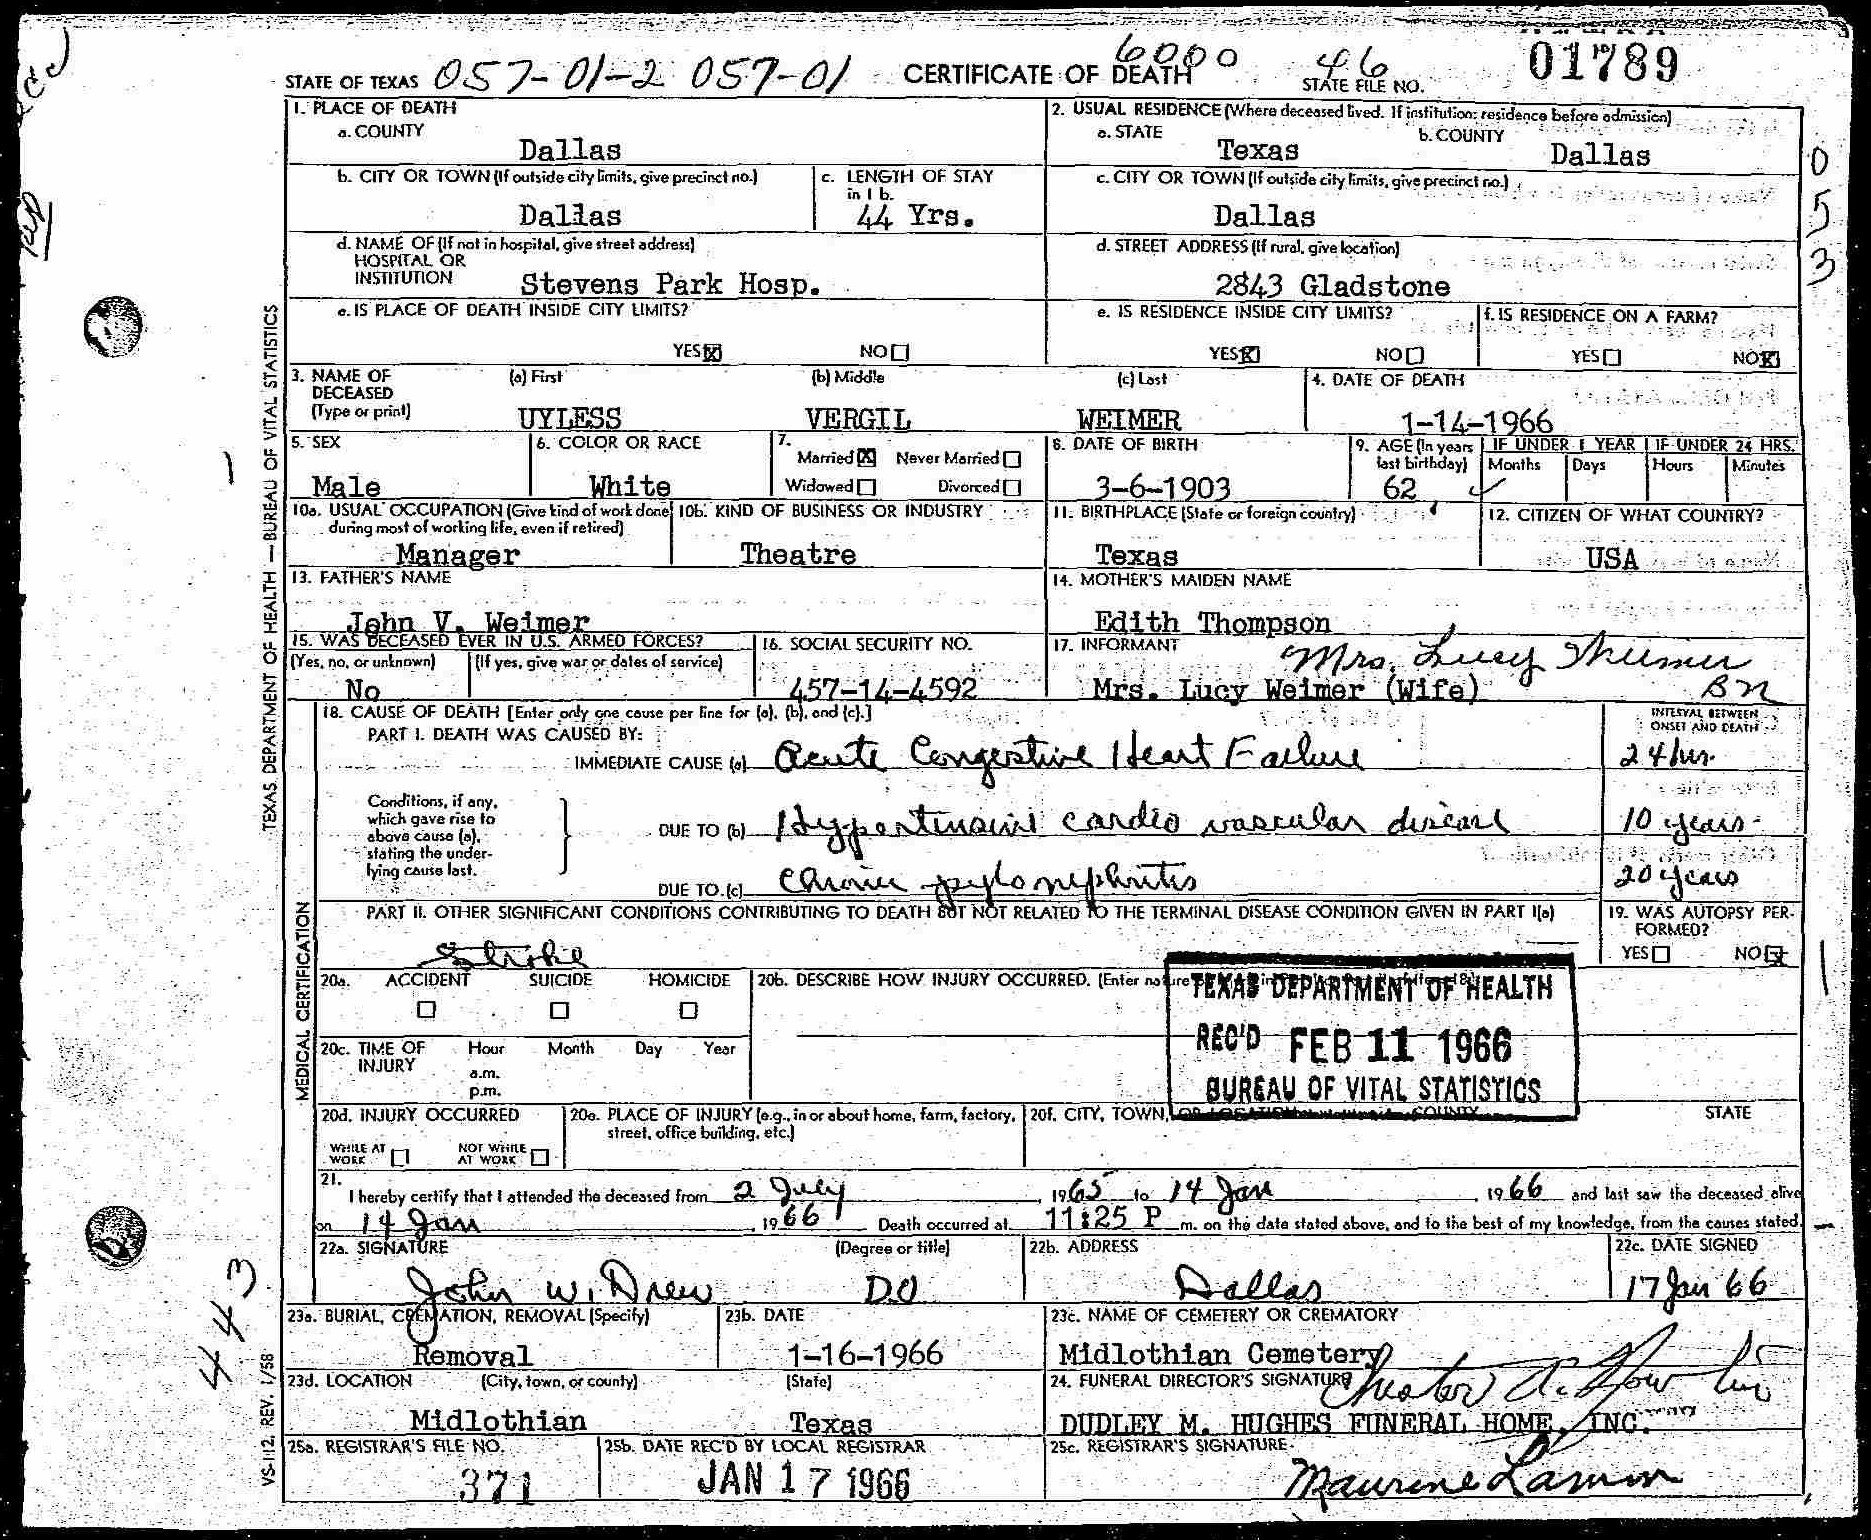 STATE OF TEXAS 057-01-2 057-01 CERTIFICATE OF DEATH 6000 46 STATE FILE NO. 01789
1. PLACE OF DEATH
a. COUNTY
Dallas
2. USUAL RESIDENCE (Where deceased lived. If institution: residence before admission)
a. STATE
Texas
b. COUNTY
Dallas
b. CITY OR TOWN (If outside city limits, give precinct no.)
Dallas
c. LENGTH OF STAY
in 1 b.
44 Yrs.
c. CITY OR TOWN (If outside city limits, give precinct no.)
Dallas
d. NAME OF (If not in hospital, give street address)
HOSPITAL OR
INSTITUTION
Stevens Park Hosp.
d. STREET ADDRESS (If rural, give location)
2843 Gladstone
0
5
3
e. IS PLACE OF DEATH INSIDE CITY LIMITS?
YES☒ NO☐
e. IS RESIDENCE INSIDE CITY LIMITS?
YES☒ NO☐
f. IS RESIDENCE ON A FARM?
YES☐ NO☒
3. NAME OF
DECEASED
(Type or print)
(a) First (b) Middle (c) Last
UYLESS VERGIL WEIMER
4. DATE OF DEATH
1-14-1966
5. SEX
Male
6. COLOR OR RACE
White
7.
Married☒ Never Married☐
Widowed☐ Divorced☐
8. DATE OF BIRTH
3-6-1903
9. AGE (In years
last birthday)
62
IF UNDER 1 YEAR IF UNDER 24 HRS.
Months Days Hours Minutes
10a. USUAL OCCUPATION (Give kind of work done
during most of working life, even if retired)
Manager
10b. KIND OF BUSINESS OR INDUSTRY
Theatre
11. BIRTHPLACE (State or foreign country)
Texas
12. CITIZEN OF WHAT COUNTRY?
USA
13. FATHER'S NAME
John V. Weimer
14. MOTHER'S MAIDEN NAME
Edith Thompson
15. WAS DECEASED EVER IN U.S. ARMED FORCES?
(Yes, no, or unknown) (If yes, give war or dates of service)
No
16. SOCIAL SECURITY NO.
457-14-4592
17. INFORMANT
Mrs. Lucy Weimer
BN
Mrs. Lucy Weimer (Wife)
18. CAUSE OF DEATH [Enter only one cause per line for (a), (b), and (c).]
PART I. DEATH WAS CAUSED BY:
INTERVAL BETWEEN
ONSET AND DEATH
IMMEDIATE CAUSE (a) Acute Congestive Heart Failure 24 hrs.
Conditions, if any,
which gave rise to
above cause (a),
stating the under-
lying cause last.
DUE TO (b) Hypertensive cardio vascular disease 10 years
DUE TO (c) Chronic pylonephritis 20 years
PART II. OTHER SIGNIFICANT CONDITIONS CONTRIBUTING TO DEATH BUT NOT RELATED TO THE TERMINAL DISEASE CONDITION GIVEN IN PART I(a)
Stroke
19. WAS AUTOPSY PER-
FORMED?
YES☐ NO☒
20a. ACCIDENT SUICIDE HOMICIDE
20b. DESCRIBE HOW INJURY OCCURRED. (Enter nature
TEXAS DEPARTMENT OF HEALTH
REC'D FEB 11 1966
BUREAU OF VITAL STATISTICS
20c. TIME OF
INJURY
Hour Month Day Year
a.m.
p.m.
20d. INJURY OCCURRED
WHILE AT
WORK ☐
NOT WHILE
AT WORK ☐
20e. PLACE OF INJURY (e.g., in or about home, farm, factory,
street, office building, etc.)
20f. CITY, TOWN, OR LOCATION COUNTY STATE
21.
I hereby certify that I attended the deceased from 2 July 1965 to 14 Jan 1966 and last saw the deceased alive
on 14 Jan 1966 Death occurred at 11:25 P m. on the date stated above, and to the best of my knowledge, from the causes stated.
22a. SIGNATURE (Degree or title)
John W. Drew DO
22b. ADDRESS
Dallas
22c. DATE SIGNED
17 Jan 66
23a. BURIAL, CREMATION, REMOVAL (Specify)
Removal
23b. DATE
1-16-1966
23c. NAME OF CEMETERY OR CREMATORY
Midlothian Cemetery
23d. LOCATION (City, town, or county) (State)
Midlothian Texas
24. FUNERAL DIRECTOR'S SIGNATURE
DUDLEY M. HUGHES FUNERAL HOME, INC.
25a. REGISTRAR'S FILE NO.
371
25b. DATE REC'D BY LOCAL REGISTRAR
JAN 17 1966
25c. REGISTRAR'S SIGNATURE
Maurine
TEXAS DEPARTMENT OF HEALTH — BUREAU OF VITAL STATISTICS
MEDICAL CERTIFICATION
VS-112, REV. 1/58
443